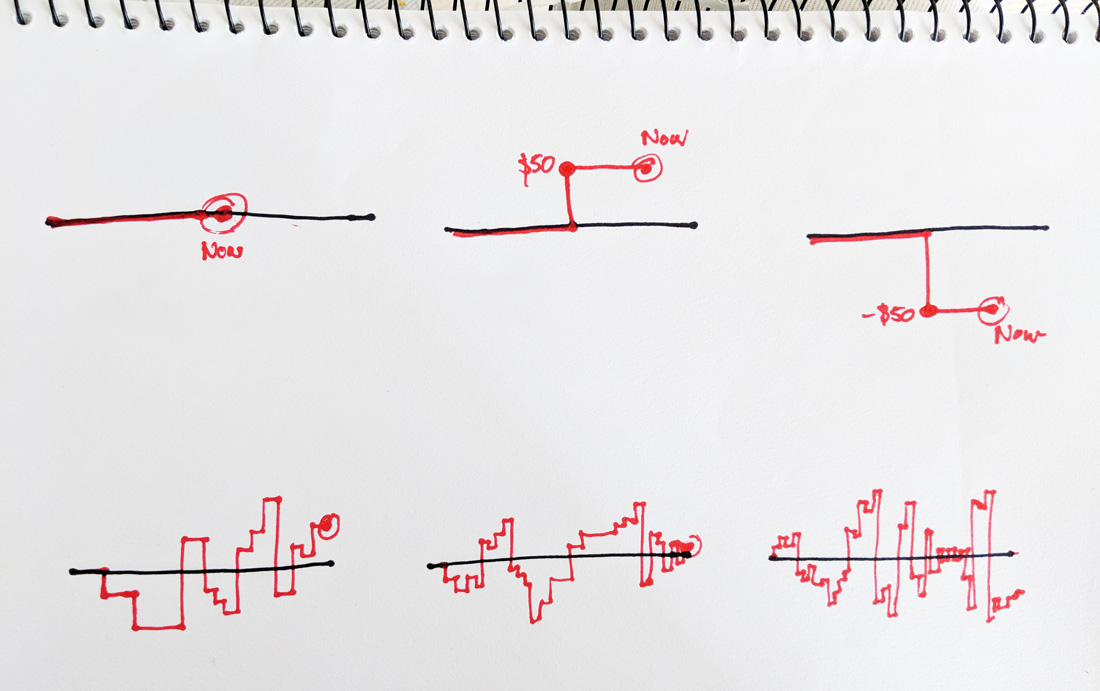 Now
$50
Now
-$50
Now